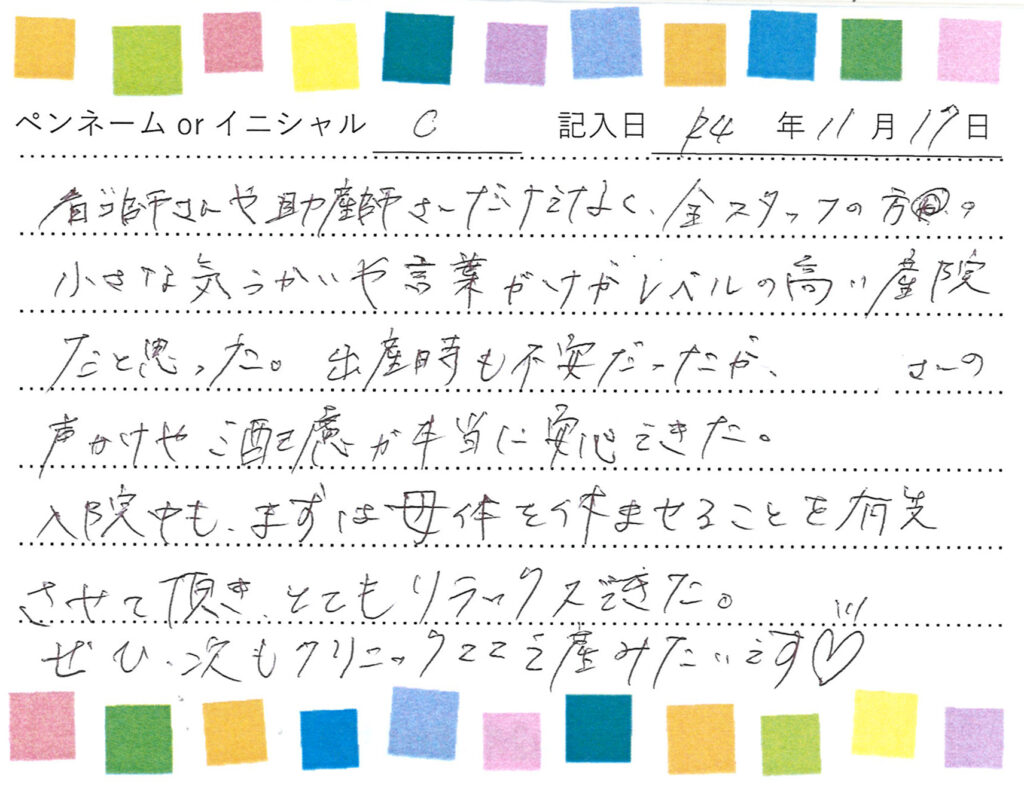 ペンネーム or イニシャル C 記入日 R4 年 11 月 17 日
看護師さんや助産師さんだけでなく、全スタッフの方の。
小さな気づかいや言葉がけがレベルの高い産院
だと思った。出産時も不安だったが、 さんの
声かけやご配慮が本当に安心できた。
入院中も、まずは母体を休ませることを有先
させて頂き、とてもリラックスできた。
ぜひ、次もクリニックココで産みたいです♡